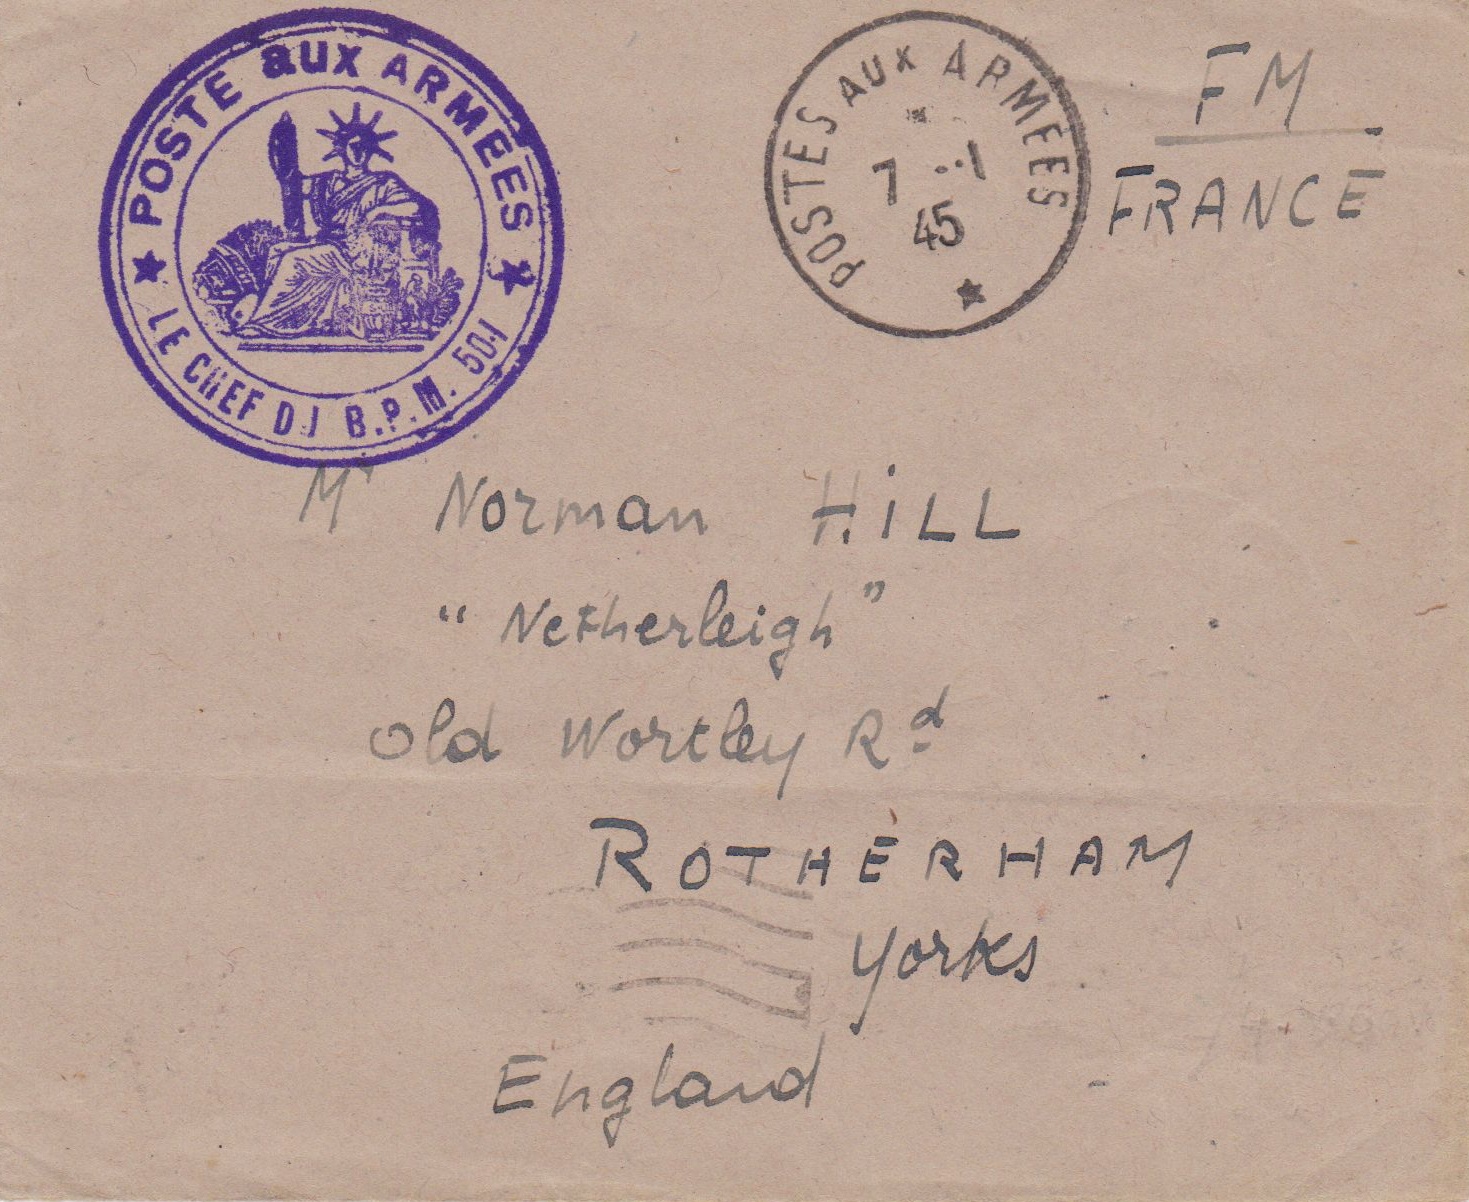 ★ POSTE aux ARMEES ★
LE CHEF DU B.P.M. 501
POSTES AUX ARMEES
7 -1
45
FM
FRANCE
Mr Norman HiLL
"Netherleigh"
Old Wortley Rd
ROTHERHAM
Yorks
England